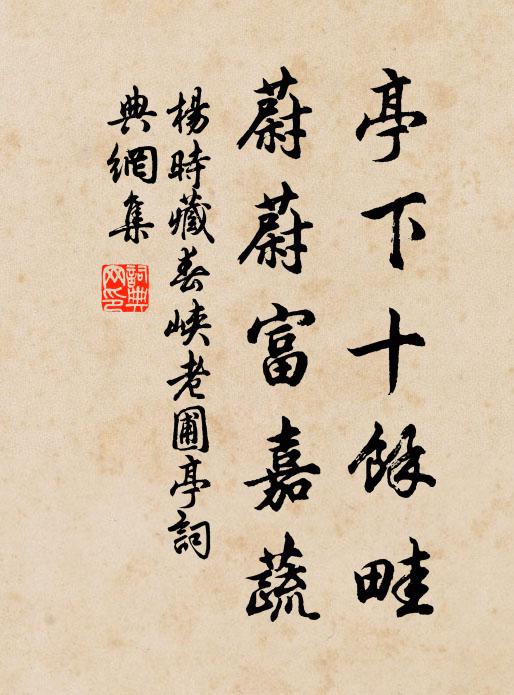 亭下十餘畦
蔚蔚富嘉蔬
楊時藏春峽老圃亭詞
典網集
詞典網印